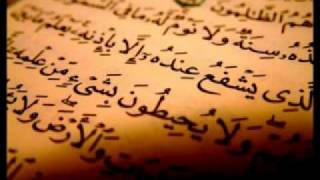 هُمُ الظَّالِمُونَ
ـذُهُ سِنَةٌ وَلَا نَوْمٌ لَهُ مَا فِي السَّمٰوَ
الَّذِي يَشْفَعُ عِنْدَهُ إِلَّا بِإِذْنِهِ يَعْلَمُ مَا بَيْـ
وَلَا يُحِيطُونَ بِشَيْءٍ مِنْ عِلْمِهِ
وَالْأَرْضَ وَلَا